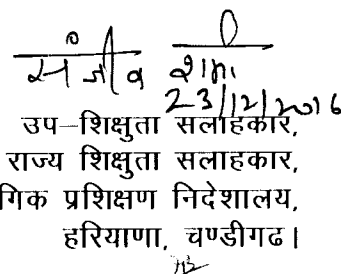 संजीव शर्मा
23/12/2016
उप–शिक्षुता सलाहकार,
राज्य शिक्षुता सलाहकार,
गिक प्रशिक्षण निदेशालय,
हरियाणा, चण्डीगढ।